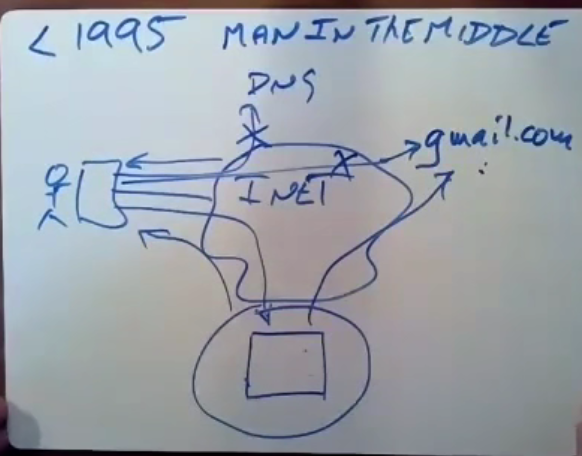 < 1995 MAN IN THE MIDDLE
DNS
gmail.com
INET